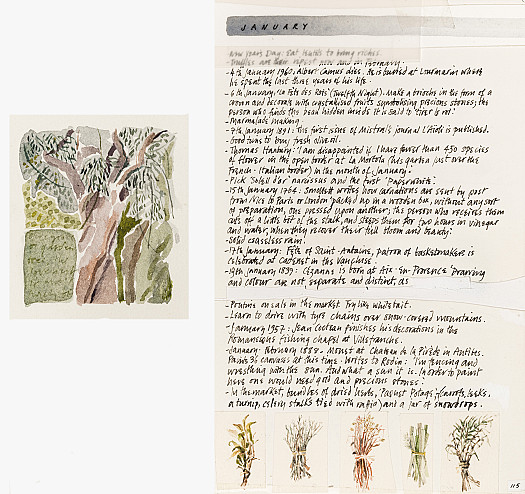 JANUARY
New Years Day: Eat lentils to bring riches.
- Truffles are their best now and in February.
- 4th January 1960, Albert Camus dies. He is buried at Lourmarin where
he spent the last three years of his life.
- 6th January: 'La Fête des Rois' (Twelfth Night). Make a brioche in the form of a
crown and decorate with crystallised fruits symbolising precious stones; the
person who finds the bean hidden inside it is said to 'tirer le roi'.
- Marmalade making.
- 7th January 1891: The first issue of Mistral's journal L'Aiòli is published.
- Good time to buy fresh olive oil.
- Thomas Hanbury: 'I am disappointed if I have fewer than 450 species
of flower in the open border at La Mortola (his garden just over the
French-Italian border) in the month of January.'
- Pick 'Soleil d'or' narcissus and the first 'Paperwhite'.
- 15th January 1764: Smollett writes how carnations are sent by post
from Nice to Paris or London 'packed up in a wooden box, without any sort
of preparation, one pressed upon another; the person who receives them
cuts off a little bit of the stalk, and steeps them for two hours in vinegar
and water, when they recover their full bloom and beauty.'
- Solid ceaseless rain.
- 17th January: Fête of Saint-Antoine, patron of basketmakers is
celebrated at Cadenet in the Vaucluse.
- 19th January 1839: Cézanne is born at Aix-en-Provence 'Drawing
and colour are not separate and distinct, as
- Poutine on sale in the market. Try like whitebait.
- Learn to drive with tyre chains over snow-covered mountains.
- January 1957: Jean Cocteau finishes his decorations in the
Romanesque fishing chapel at Villefranche.
- January-February 1888 - Monet at Chateau de la Pinède in Antibes.
Paints 36 canvases at this time. Writes to Rodin: 'I'm fencing and
wrestling with the sun. And what a sun it is. In order to paint
here one would need gold and precious stones.'
- In the market, bundles of dried herbs, 'Paquet Potage' (carrots, leeks,
a turnip, celery stalks tied with raffia) and a jar of snowdrops.
115